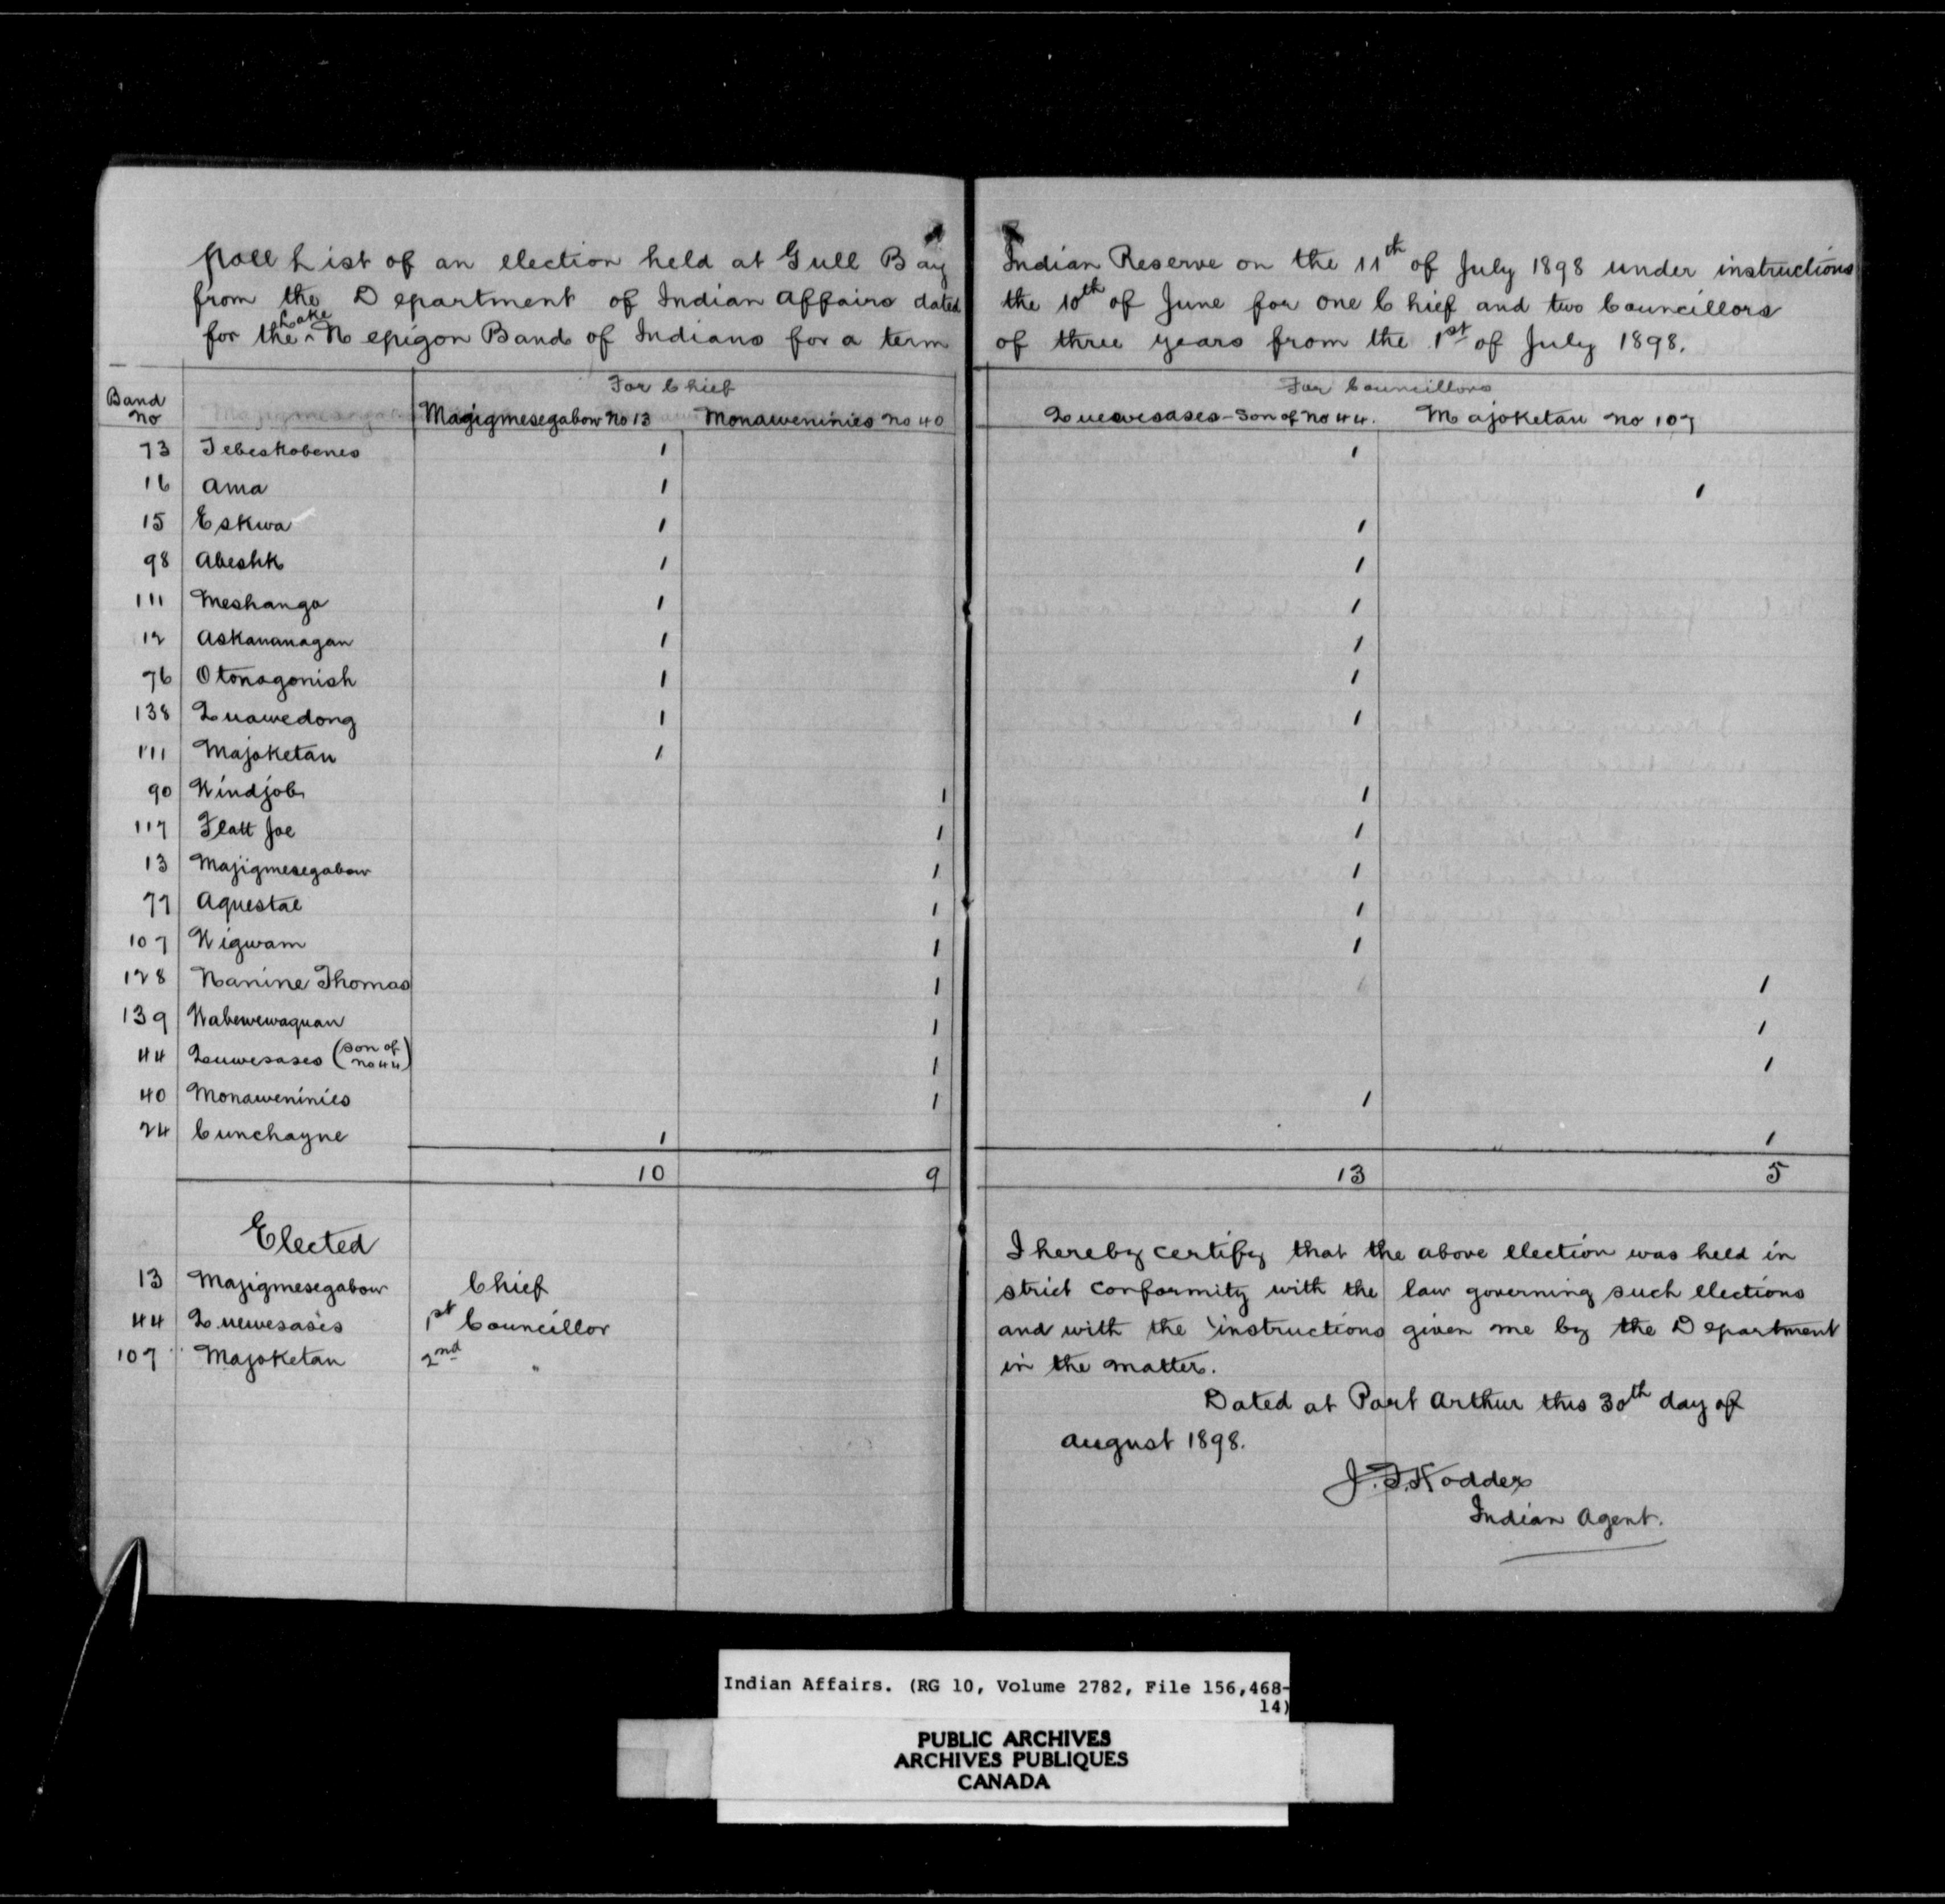 Poll List of an election held at Gull Bay Indian Reserve on the 11th of July 1898 under instructions
from the Department of Indian Affairs dated the 10th of June for one Chief and two Councillors
for the Lake Nepigon Band of Indians for a term of three years from the 1st of July 1898.
For Chief For Councillors
Band No Magigmesegabow No 13 Monaweninies No 40 Quewesases - Son of No 44. Majoketau No 107
73 Tebeskobenes 1 1
16 Ama 1 1
15 Eskwa 1 1
98 Abeshk 1 1
111 Meshango 1 1
12 Askananagan 1 1
76 Otonagonish 1 1
138 Quawedong 1 1
111 Majoketau 1
90 Windjob 1 1
117 Flatt Joe 1 1
13 Majigmesegabow 1 1
77 Aquestae 1 1
107 Wigwam 1 1
128 Nanine Thomas 1 1
139 Wabewewaquan 1 1
44 Quewesases (son of No 44) 1 1
40 Monaweninies 1 1
24 Cunchayne 1 1
10 9 13 5
Elected
13 Majigmesegabow Chief
44 Quewesases 1st Councillor
107 Majoketau 2nd "
I hereby certify that the above election was held in
strict conformity with the law governing such elections
and with the instructions given me by the Department
in the matter.
Dated at Port Arthur this 30th day of
August 1898.
J. F. Hodder
Indian Agent.
Indian Affairs. (RG 10, Volume 2782, File 156,468-
14)
PUBLIC ARCHIVES
ARCHIVES PUBLIQUES
CANADA